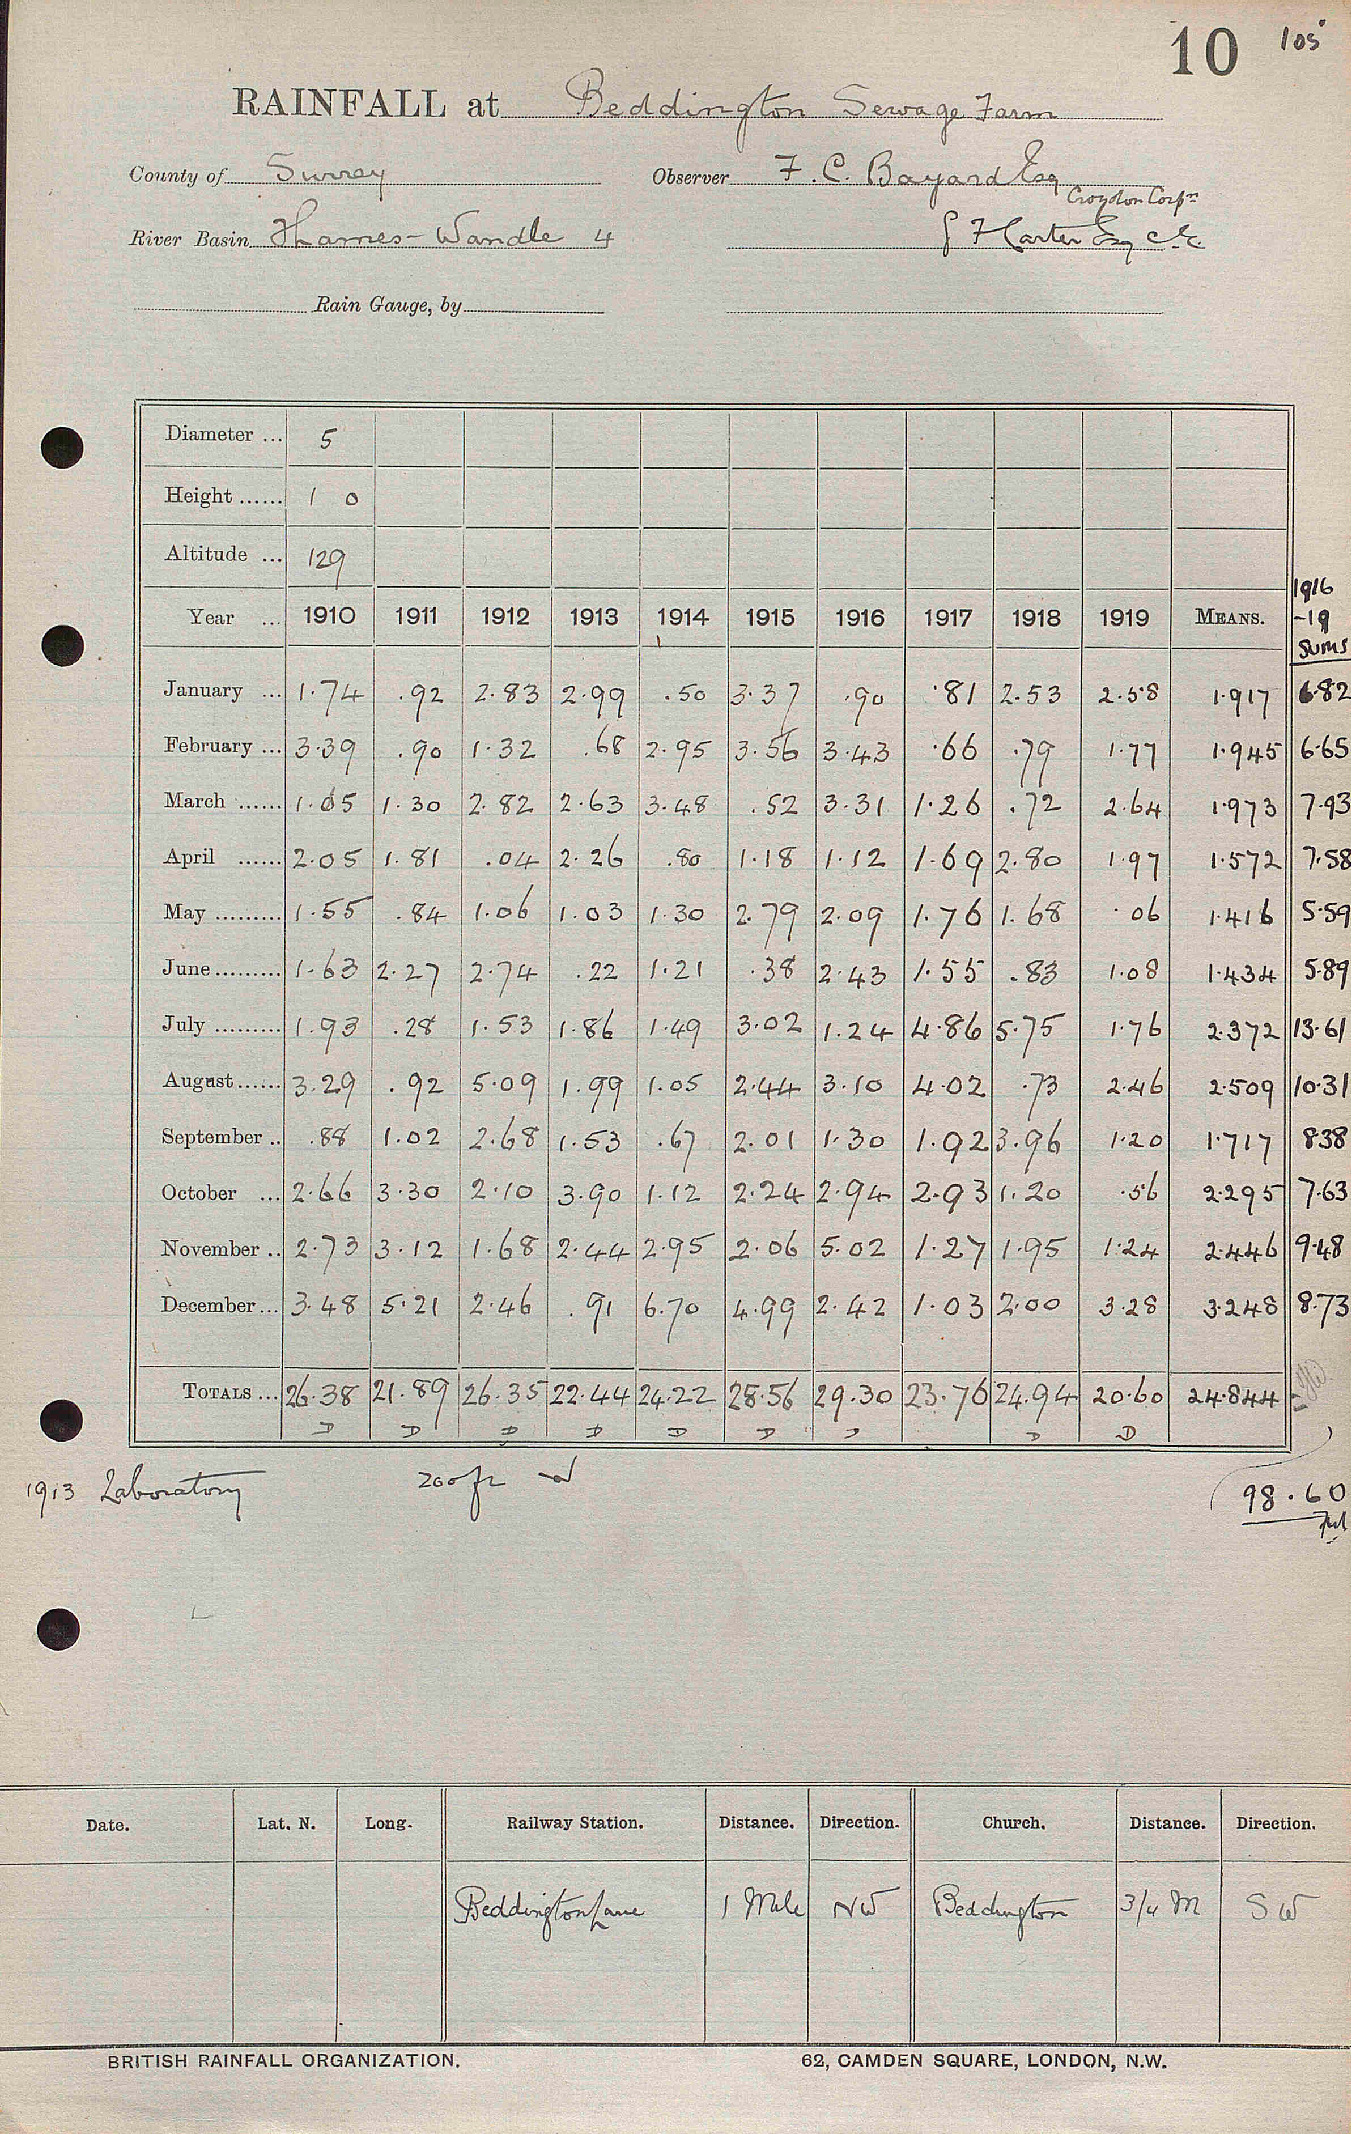 10 105
RAINFALL at Beddington Sewage Farm
County of Surrey Observer F. C. Bayard Esq
Croydon Corpn
River Basin Thames - Wandle 4 Carter Esq C.E.
Rain Gauge, by
Diameter ... 5
Height ...... 1 0
Altitude ... 129
1916
-19
Sums
Year ... 1910 1911 1912 1913 1914 1915 1916 1917 1918 1919 MEANS.
January ... 1.74 .92 2.83 2.99 .50 3.37 .90 .81 2.53 2.58 1.917 6.82
February ... 3.39 .90 1.32 .68 2.95 3.56 3.43 .66 .79 1.77 1.945 6.65
March ...... 1.05 1.30 2.82 2.63 3.48 .52 3.31 1.26 .72 2.64 1.973 7.93
April ...... 2.05 1.81 .04 2.26 .80 1.18 1.12 1.69 2.80 1.97 1.572 7.58
May ......... 1.55 .84 1.06 1.03 1.30 2.79 2.09 1.76 1.68 .06 1.416 5.59
June ......... 1.63 2.27 2.74 .22 1.21 .38 2.43 1.55 .83 1.08 1.434 5.89
July ......... 1.93 .28 1.53 1.86 1.49 3.02 1.24 4.86 5.75 1.76 2.372 13.61
August ...... 3.29 .92 5.09 1.99 1.05 2.44 3.10 4.02 .73 2.46 2.509 10.31
September .. .88 1.02 2.68 1.53 .67 2.01 1.30 1.92 3.96 1.20 1.717 8.38
October ... 2.66 3.30 2.10 3.90 1.12 2.24 2.94 2.93 1.20 .56 2.295 7.63
November .. 2.73 3.12 1.68 2.44 2.95 2.06 5.02 1.27 1.95 1.24 2.446 9.48
December ... 3.48 5.21 2.46 .91 6.70 4.99 2.42 1.03 2.00 3.28 3.248 8.73
TOTALS ... 26.38 21.89 26.35 22.44 24.22 28.56 29.30 23.76 24.94 20.60 24.844
D D D D D D D D D
1913 Laboratory 200 ft
98.60
Date. Lat. N. Long. Railway Station. Distance. Direction. Church. Distance. Direction.
Beddington Lane 1 Mile NW Beddington 3/4 M SW
BRITISH RAINFALL ORGANIZATION. 62, CAMDEN SQUARE, LONDON, N.W.